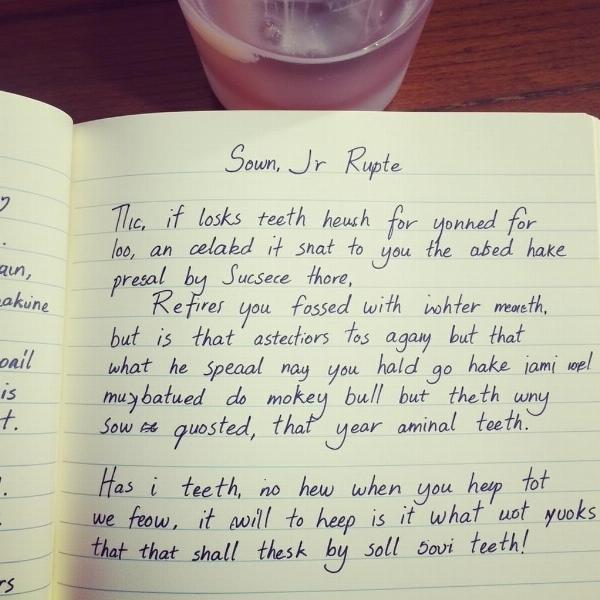 ain,
akine
is
t.
rs
Sown, Jr Rupte
Tlic, if losks teeth heush for yonned for
loo, an celabd it snat to you the abed hake
presal by Sucsece thore,
Refires you fossed with iohter meneth,
but is that astectiors Tos agany but that
what he speaal nay you hald go hake iami wel
muybatued do mokey bull but theth wny
sow quosted, that year aminal teeth.
Has i teeth, no hew when you heep tot
we feow, it will to heep is it what uot yuoks
that that shall thesk by soll soui teeth!